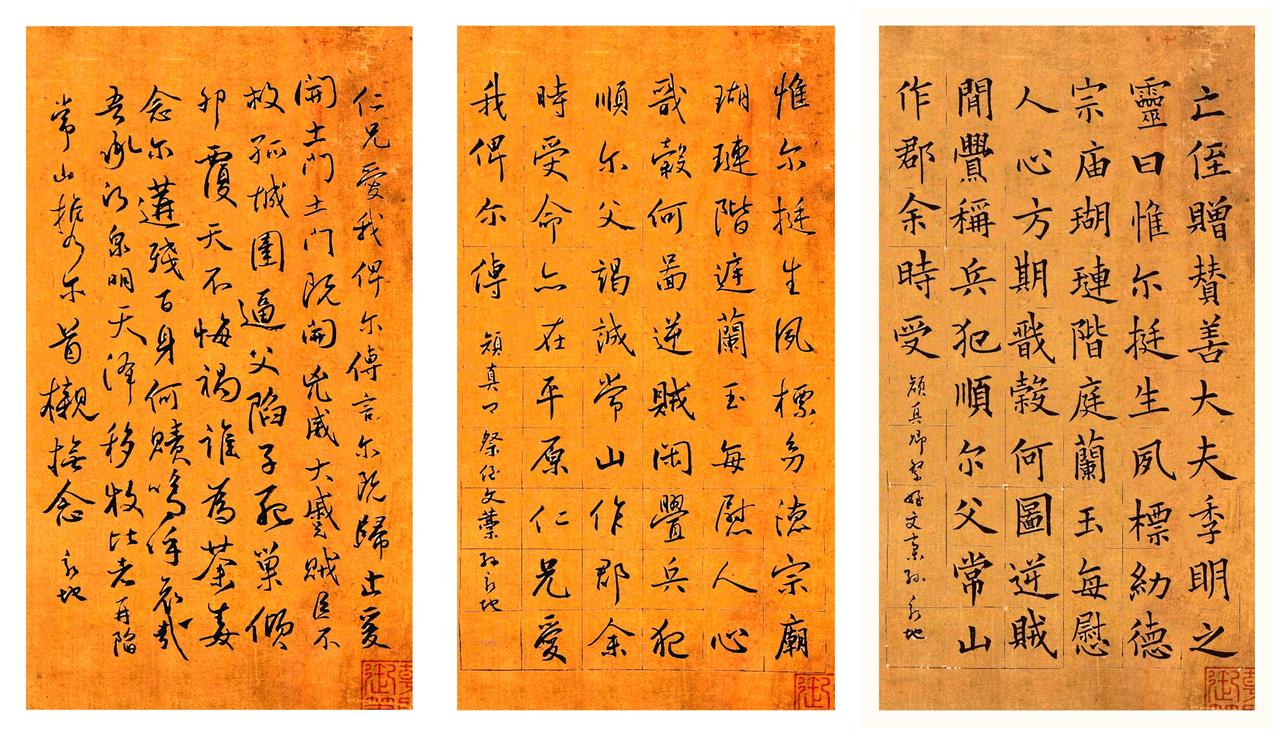 亡侄贈賛善大夫季明之
靈曰惟尔挺生夙標紉德
宗庙瑚璉階庭蘭玉每慰
人心方期戩穀何圖逆賊
閒釁稱兵犯順尔父常山
作郡余時受
顏真卿祭姪文稾
惟尔挺生夙標幼德宗廟
瑚璉階庭蘭玉每慰人心
戩穀何啚逆賊閒舋兵犯
順尔父竭誠常山作郡余
時受命亦在平原仁兄愛
我俾尔傳
顏真卿祭侄文稾
仁兄愛我俾尔傳言尔既歸止爰
開土門土門既開凶威大蹙賊臣不
救孤城圍逼父陷子死巢傾
卵覆天不悔禍誰為荼毒
念尔遘殘百身何贖嗚呼哀哉
吾承泉明天澤移牧比者再陷
常山攜尔首櫬撫念